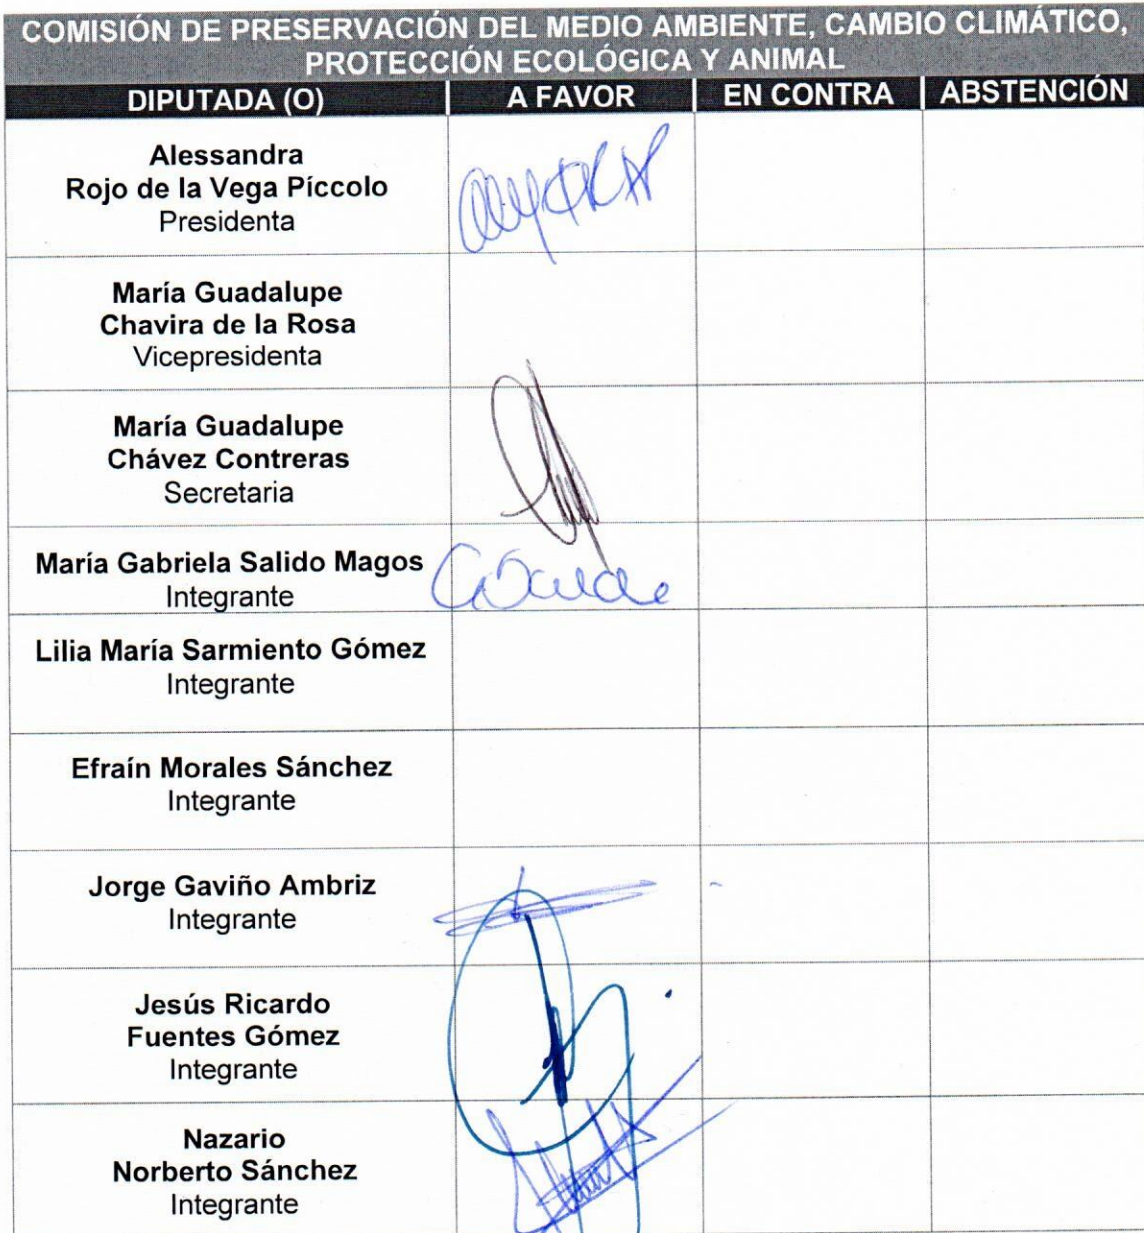 COMISIÓN DE PRESERVACIÓN DEL MEDIO AMBIENTE, CAMBIO CLIMÁTICO,
PROTECCIÓN ECOLÓGICA Y ANIMAL
DIPUTADA (O) A FAVOR EN CONTRA ABSTENCIÓN
Alessandra
Rojo de la Vega Píccolo
Presidenta
María Guadalupe
Chavira de la Rosa
Vicepresidenta
María Guadalupe
Chávez Contreras
Secretaria
María Gabriela Salido Magos
Integrante
Lilia María Sarmiento Gómez
Integrante
Efraín Morales Sánchez
Integrante
Jorge Gaviño Ambriz
Integrante
Jesús Ricardo
Fuentes Gómez
Integrante
Nazario
Norberto Sánchez
Integrante